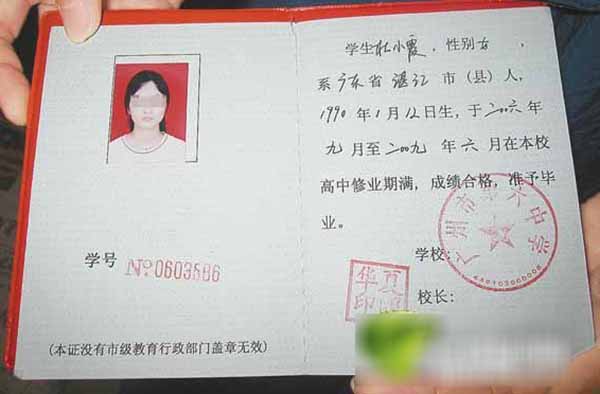 学号 №0603586
(本证没有市级教育行政部门盖章无效)
学生杜小霞，性别女，
系广东省湛江市（县）人，
1990年1月12日生，于二〇〇六年
九月至二〇〇九年六月在本校
高中修业期满，成绩合格，准予毕
业。
学校：
广州市第六中学
校长：